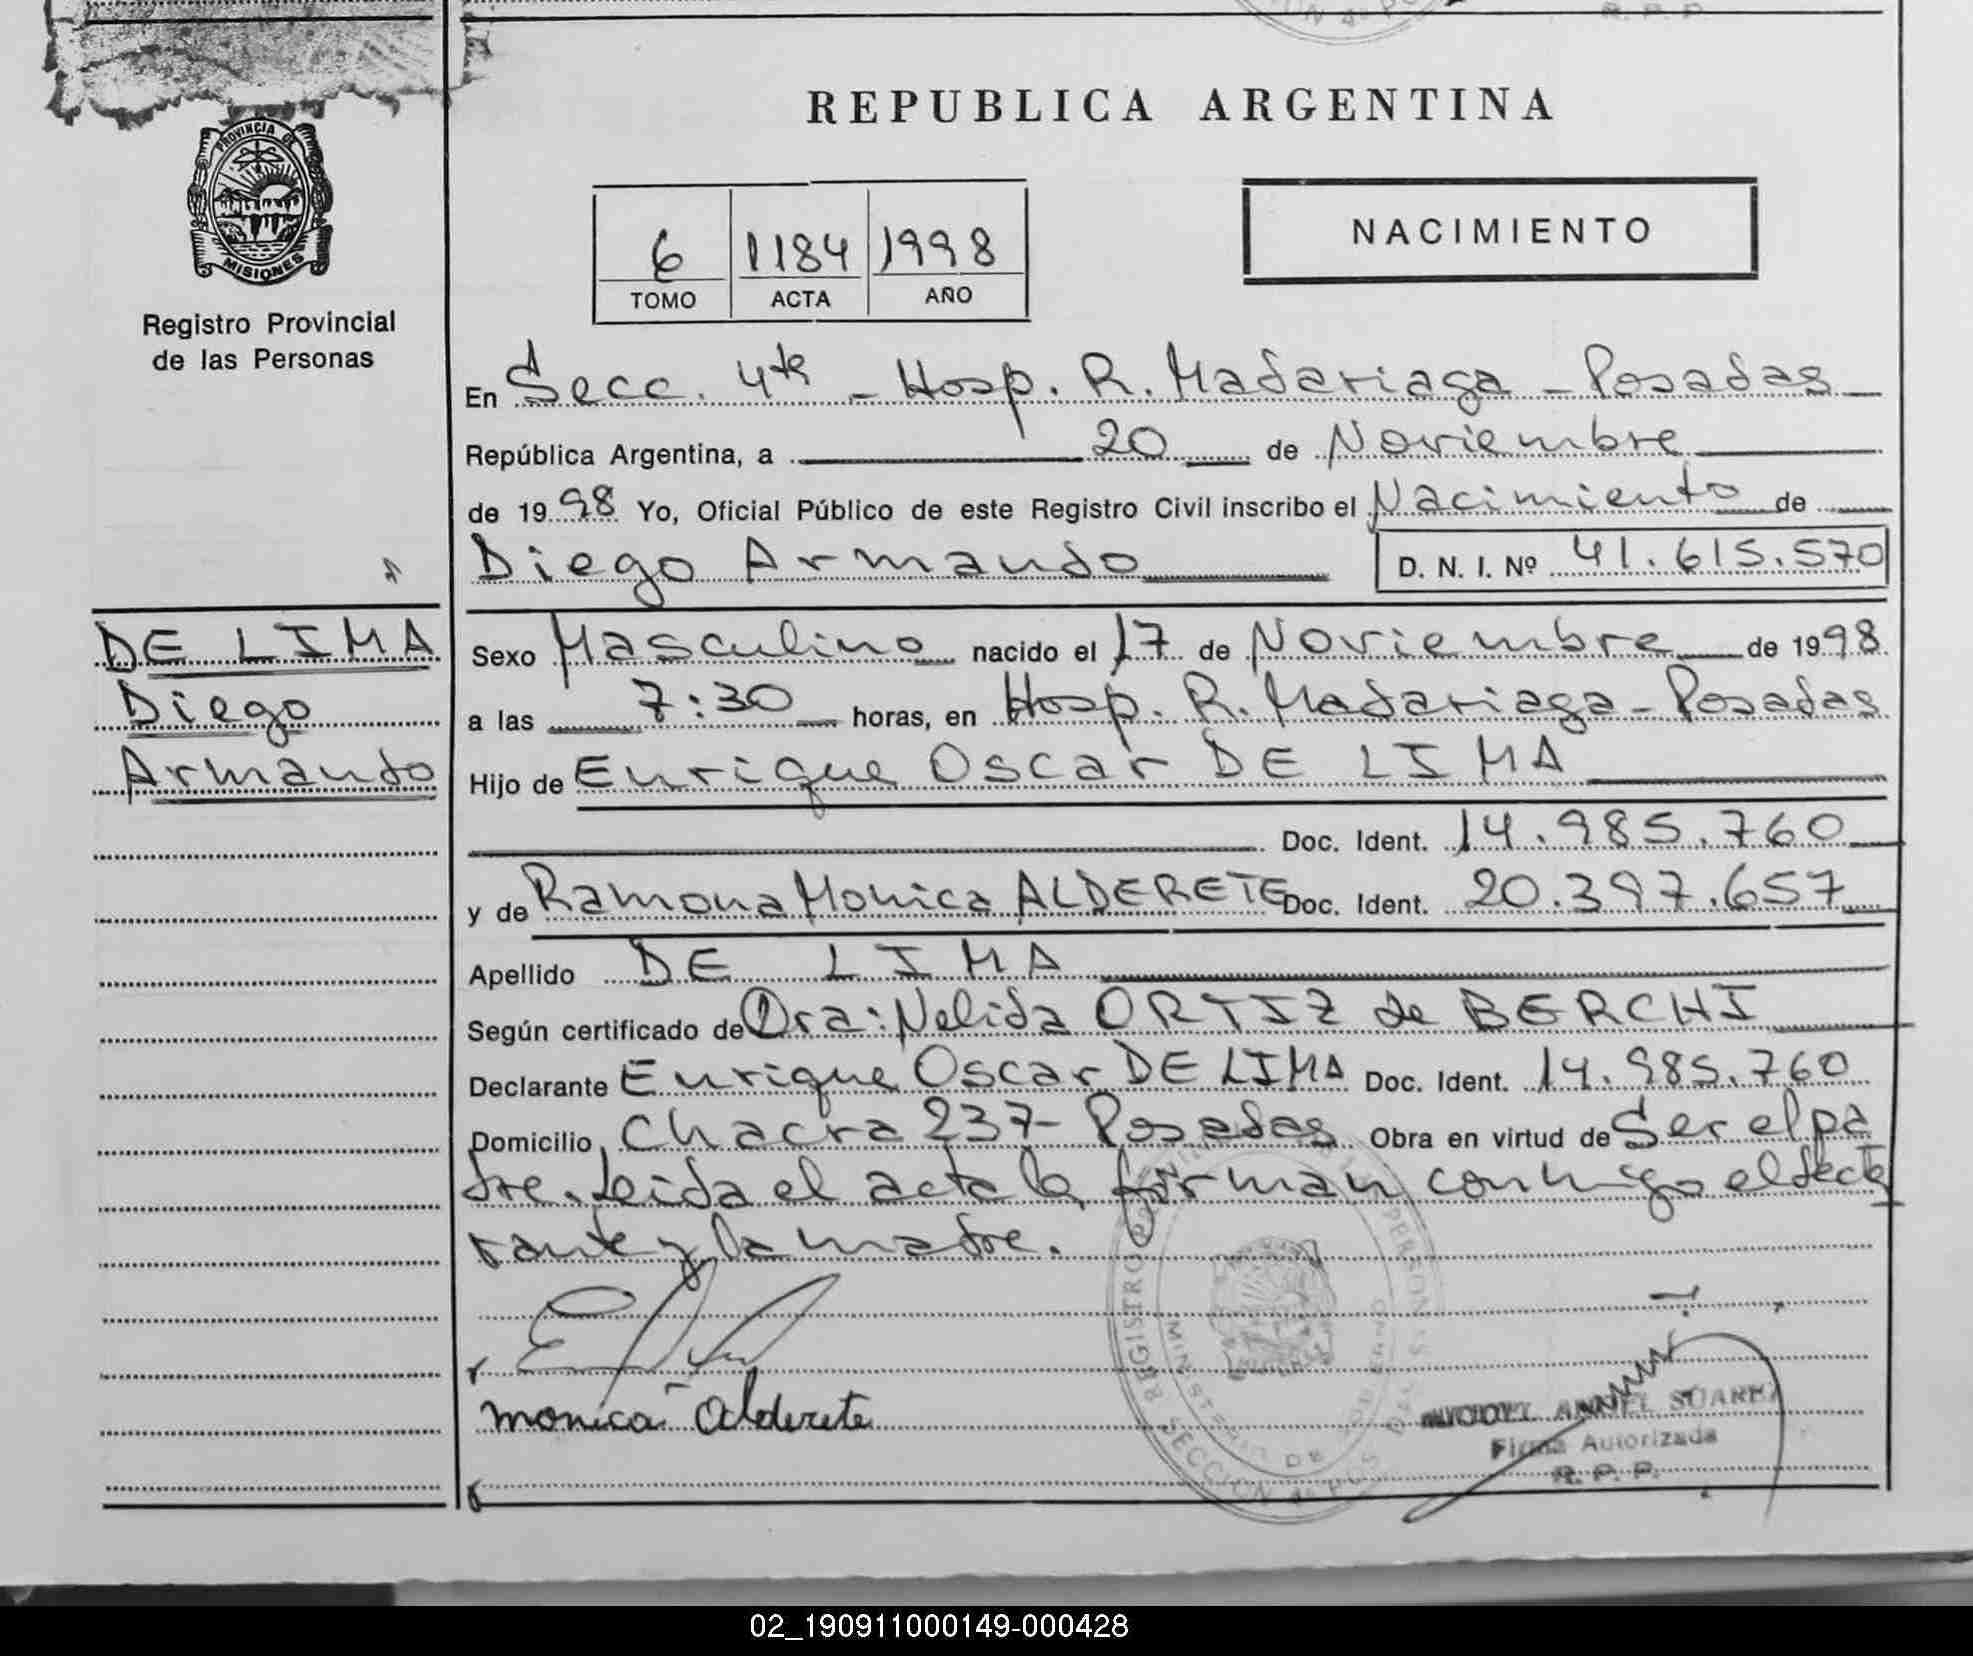 REPUBLICA ARGENTINA
PROVINCIA DE
MISIONES
Registro Provincial
de las Personas
NACIMIENTO
6 1184 1998
TOMO ACTA AÑO
En Secc. 4ta - Hosp. R. Madariaga - Posadas
República Argentina, a 20 de Noviembre
de 1998 Yo, Oficial Público de este Registro Civil inscribo el Nacimiento de
Diego Armando D. N. I. Nº 41.615.570
DE LIMA
Diego
Armando
Sexo Masculino nacido el 17 de Noviembre de 1998
a las 7:30 horas, en Hosp. R. Madariaga - Posadas
Hijo de Enrique Oscar DE LIMA
Doc. Ident. 14.985.760
y de Ramona Monica ALDERETE Doc. Ident. 20.397.657
Apellido DE LIMA
Según certificado de Dra: Nelida ORTIZ de BERCHI
Declarante Enrique Oscar DE LIMA Doc. Ident. 14.985.760
Domicilio Chacra 237- Posadas Obra en virtud de Ser el pa
dre. Leida el acta la firman conmigo el decla
rante y la madre.
monica Alderete
SUAREZ
Firma Autorizada
R. P. P.
02_190911000149-000428